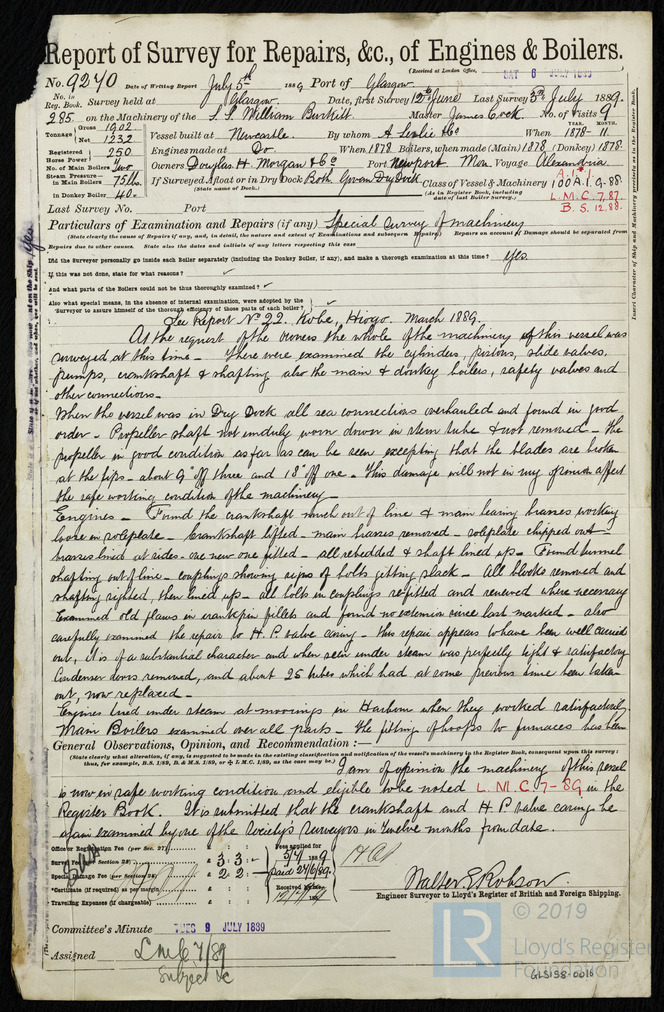 Report of Survey for Repairs, &c., of Engines & Boilers.
(Received at London Office, SAT 6 JULY 1889
No. 9240 Date of Writing Report July 5th 1889 Port of Glasgow
No. in Reg. Book. Survey held at Glasgow Date, first Survey 12th June Last Survey 5th July 1889.
285 on the Machinery of the S.S. William Burkitt Master James Cook No. of Visits 9
Tonnage Gross 1902 Net 1232 Vessel built at Newcastle By whom A Leslie & Co When 1878-11
YEAR. MONTH.
Registered Horse Power 250 Engines made at Do When 1878 Boilers, when made (Main) 1878 (Donkey) 1878
No. of Main Boilers Two Owners Douglas H. Morgan & Co Port Newport Mon. Voyage Alexandria
Steam Pressure in Main Boilers 75 lbs If Surveyed Afloat or in Dry Dock Both Govan Dry Dock Class of Vessel & Machinery 100 A.1. 9.88
in Donkey Boiler 40 (State name of Dock.) (As in Register Book, including date of last Boiler Survey.) L.M.C. 7,87.
B.S. 12.88.
Last Survey No. Port
Particulars of Examination and Repairs (if any) Special survey of machinery
(State clearly the cause of Repairs if any, and, in detail, the nature and extent of Examinations and subsequent Repairs.) Repairs on account of Damage should be separated from
Repairs due to other causes. State also the dates and initials of any letters respecting this case
Did the Surveyor personally go inside each Boiler separately (including the Donkey Boiler, if any), and make a thorough examination at this time? yes
If this was not done, state for what reasons?
And what parts of the Boilers could not be thus thoroughly examined?
Also what special means, in the absence of internal examination, were adopted by the
Surveyor to assure himself of the thorough efficiency of those parts of each boiler?
See Report No 22. Kobe, Hiogo. March 1889.
At the request of the owners the whole of the machinery of this vessel was
surveyed at this time - There were examined the cylinders, pistons, slide valves,
pumps, crankshaft & shafting also the main & donkey boilers, safety valves and
other connections -
When the vessel was in Dry Dock all sea connections overhauled and found in good
order - Propeller shaft not unduly worn down in stern tube & not removed - the
propeller in good condition as far as can be seen excepting that the blades are broken
at the tips - about 9" off three and 18" off one - This damage will not in my opinion affect
the safe working condition of the machinery -
Engines - Found the crankshaft much out of line & main bearing brasses working
loose in soleplate - Crankshaft lifted - main brasses removed - soleplate chipped out -
brasses lined at sides - one new one fitted - all rebedded & shaft lined up - Found tunnel
shafting out of line - couplings showing signs of bolts getting slack - All blocks removed and
shafting sighted, then lined up - all bolts in couplings refitted and renewed where necessary
Examined old flaws in crankpin fillets and found no extension since last marked - also
carefully examined the repair to H.P. valve casing - this repair appears to have been well carried
out, it is of a substantial character and when seen under steam was perfectly tight & satisfactory
Condenser doors removed, and about 25 tubes which had at some previous time been taken
out, now replaced -
Engines tried under steam at moorings in Harbour when they worked satisfactorily
Main Boilers examined over all parts - the fitting of hoops to furnaces has been
General Observations, Opinion, and Recommendation :-
(State clearly what alteration, if any, is suggested to be made in the existing classification and notification of the vessel's machinery in the Register Book, consequent upon this survey:
thus, for example, B.S. 1/89, B. & M.S. 1/89, or L.M.C. 1/89, as the case may be.)
I am of opinion the machinery of this vessel
is now in safe working condition and eligible to be noted L.M.C. 7-89 in the
Register Book. It is submitted that the crankshaft and H.P. valve casing be
again examined by one of the Society's surveyors in twelve months from date.
Office or Registration Fee (per Sec. 27) £ : :
Survey Fee (per Section 28) £ 3 : 3 : -
Special Damage Fee (per Section 28) £ 2 : 2 : -
*Certificate (if required) as per margin £ : :
Travelling Expenses (if chargeable) £ : :
Fees applied for
5/7 1889
Walter E Robson
Engineer Surveyor to Lloyd's Register of British and Foreign Shipping.
Committee's Minute TUES 9 JULY 1889
Assigned LMC 7/89
Subject &c
Insert Character of Ship and Machinery precisely as in the Register Book.
© 2019
LR Lloyd's Register
Foundation
GLS138-0016